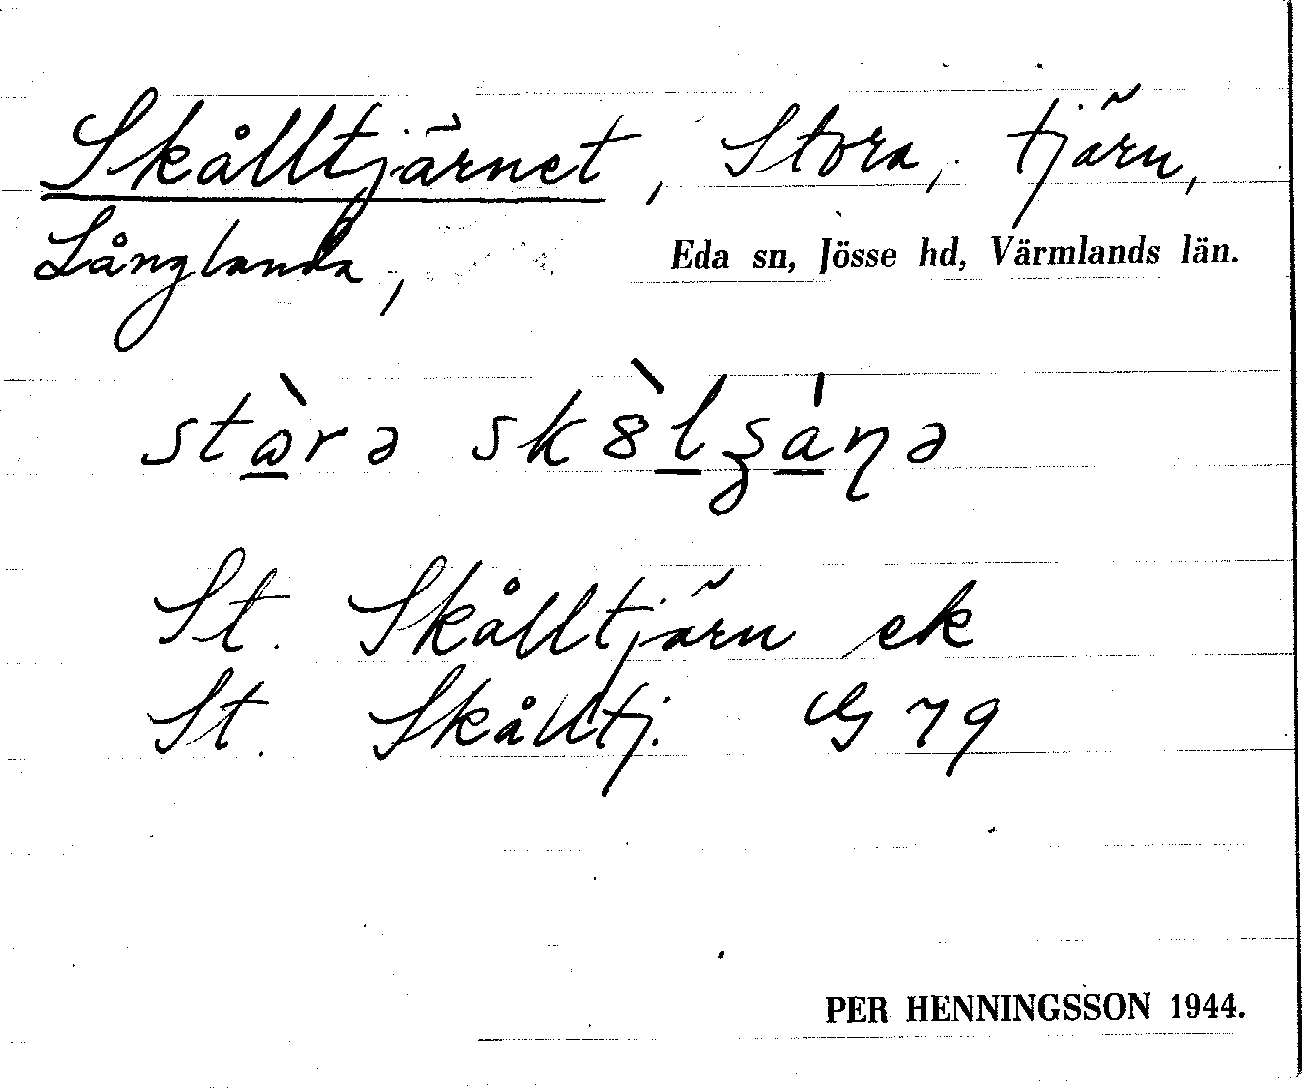 Skålltjärnet, Stora, tjärn,
Långlanda, Eda sn, Jösse hd, Värmlands län.
stὼrə sk8̀lʒáɳə
St. Skålltjärn ek
St. Skålltj. G 79
PER HENNINGSSON 1944.